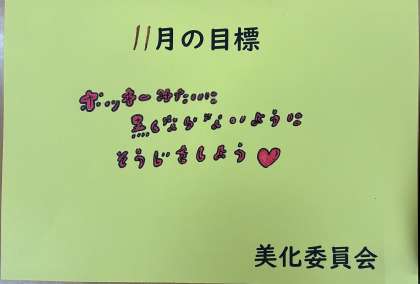 11月の目標
ポッキーみたいに
黒くならないように
そうじをしよう
美化委員会